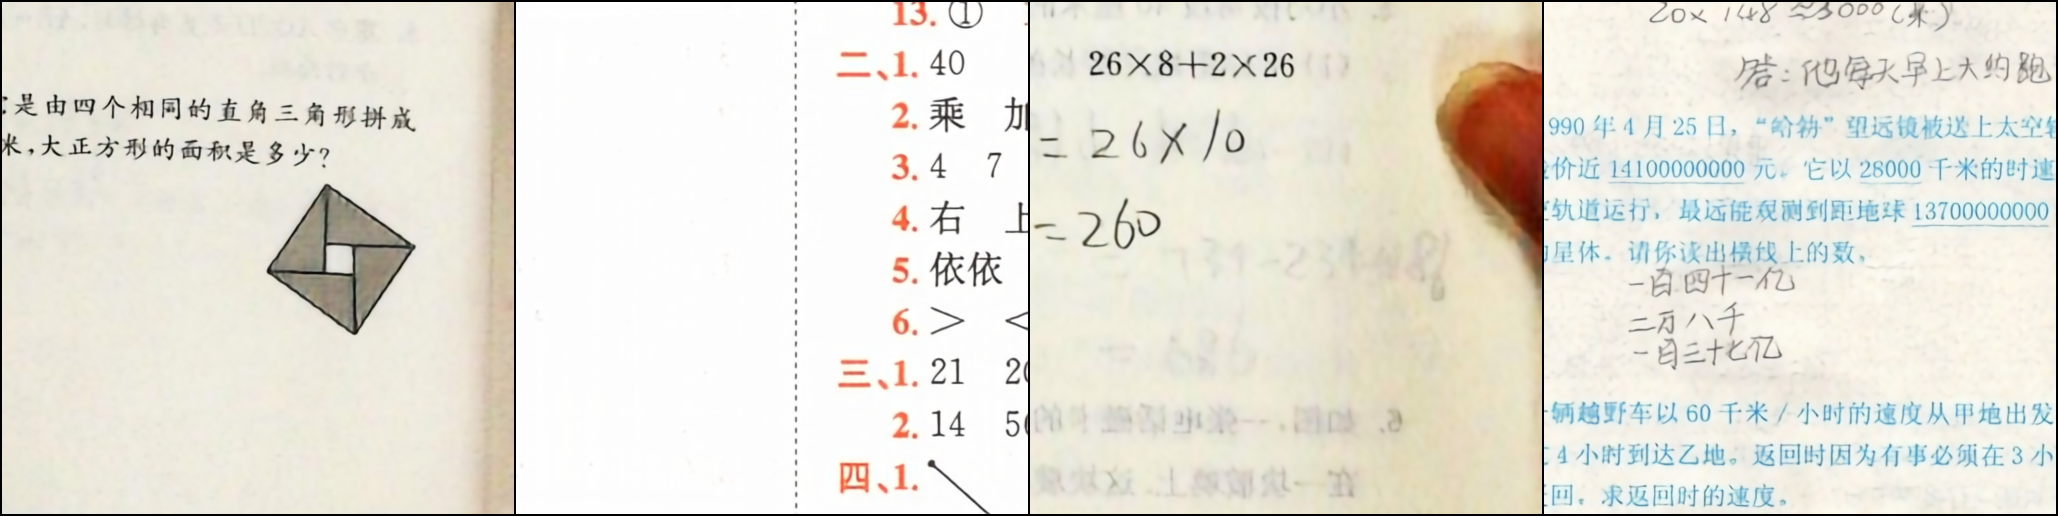 是由四个相同的直角三角形拼成
米,大正方形的面积是多少?
13. ①
二、1. 40
2. 乘 加
3. 4 7
4. 右 上
5. 依依
6. > <
三、1. 21 20
2. 14 56
四、1.
26×8+2×26
=26×10
=260
20×148≈3000(米)
答:他每天早上大约跑
990年4月25日,“哈勃”望远镜被送上太空轨
价近14100000000元。它以28000千米的时速
轨道运行,最远能观测到距地球13700000000
星体。请你读出横线上的数。
一百四十一亿
二万八千
一百三十七亿
辆越野车以60千米/小时的速度从甲地出发
4小时到达乙地。返回时因为有事必须在3小
回。求返回时的速度。